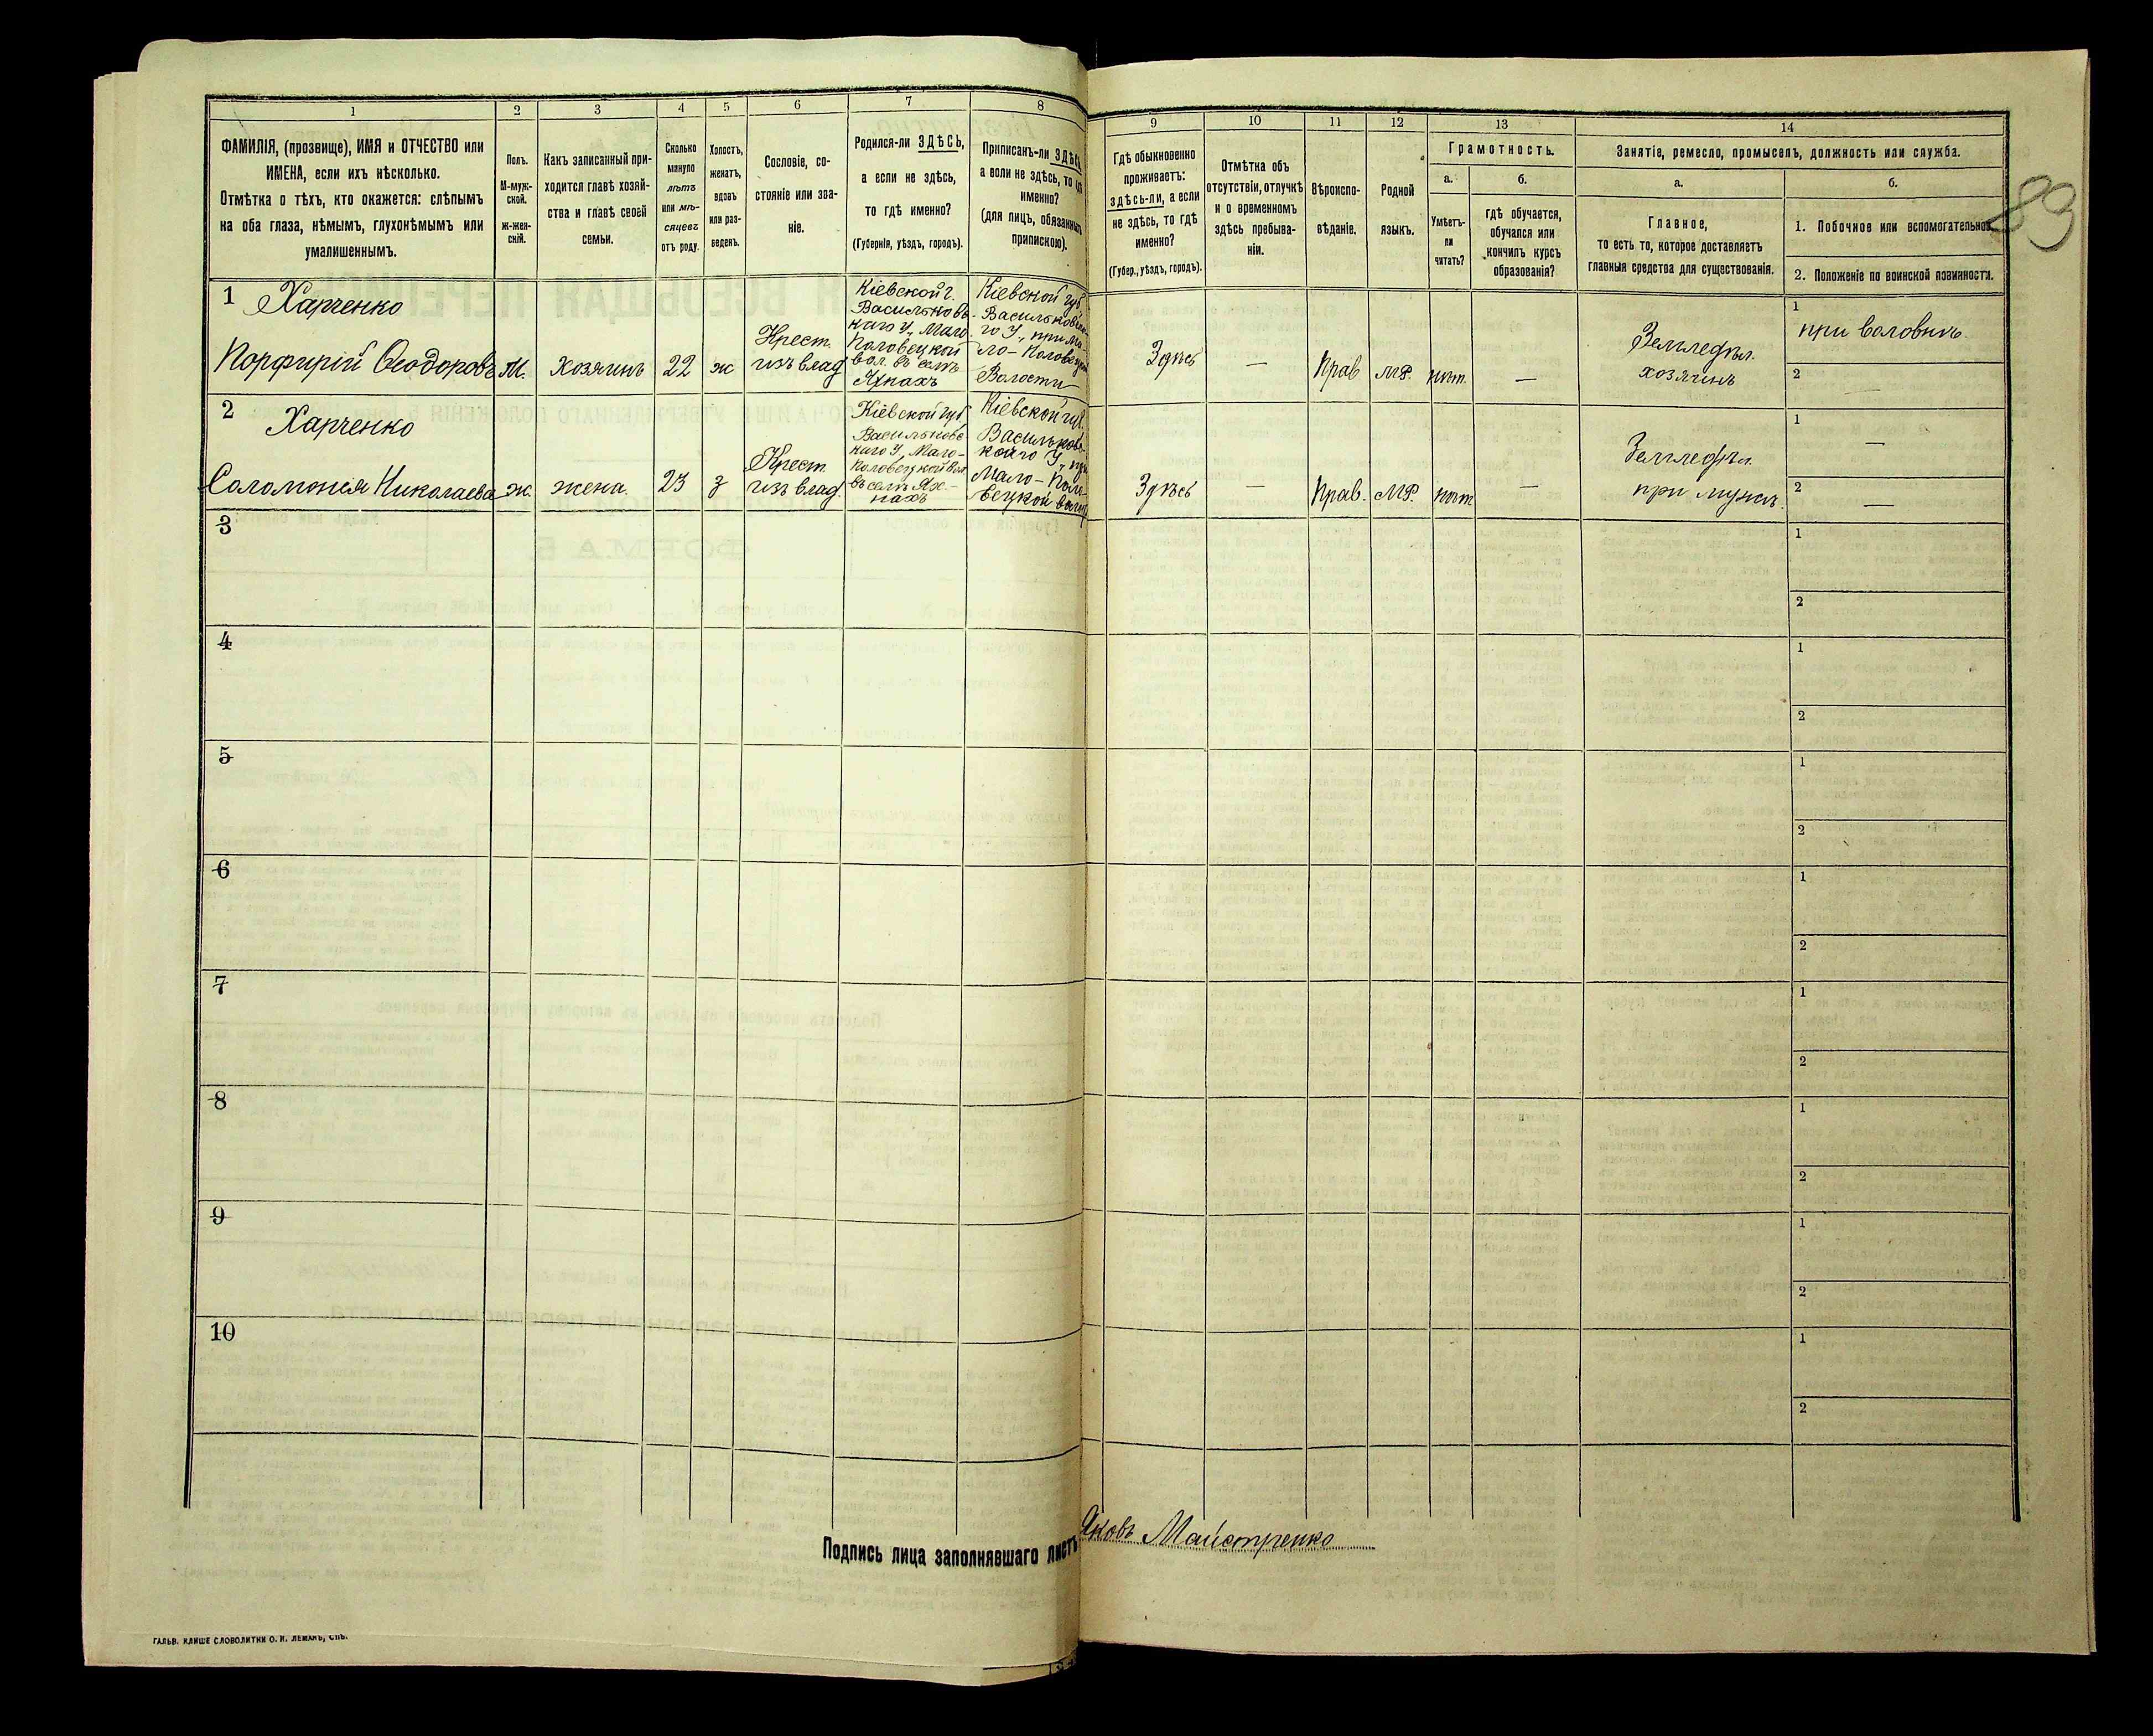 1
2
3
4
5
6
7
8
ФАМИЛІЯ, (прозвище), ИМЯ и ОТЧЕСТВО или
ИМЕНА, если ихъ нѣсколько.
Отмѣтка о тѣхъ, кто окажется: слѣпымъ
на оба глаза, нѣмымъ, глухонѣмымъ или
умалишеннымъ.
Полъ.
М-муж-
ской.
Ж-жен-
скій.
Какъ записанный при-
ходится главѣ хозяй-
ства и главѣ своей
семьи.
Сколько
минуло
лѣтъ
или мѣ-
сяцевъ
отъ роду.
Холостъ,
женатъ,
вдовъ
или раз-
веденъ.
Сословіе, со-
стояніе или зва-
ніе.
Родился-ли ЗДѢСЬ,
а если не здѣсь,
то гдѣ именно?
(Губернія, уѣздъ, городъ).
Приписанъ-ли ЗДѢСЬ,
а если не здѣсь, то гдѣ
именно?
(для лицъ, обязанныхъ
припискою).
9
10
11
12
13
14
Гдѣ обыкновенно
проживаетъ:
здѣсь-ли, а если
не здѣсь, то гдѣ
именно?
(Губер., уѣздъ, городъ).
Отмѣтка объ
отсутствіи, отлучкѣ
и о временномъ
здѣсь пребыва-
ніи.
Вѣроиспо-
вѣданіе.
Родной
языкъ.
Грамотность.
а.
Умѣетъ-
ли
читать?
б.
гдѣ обучается,
обучался или
кончилъ курсъ
образованія?
Занятіе, ремесло, промыселъ, должность или служба.
а.
Главное,
то есть то, которое доставляетъ
главныя средства для существованія.
б.
1. Побочное или вспомогательное.
2. Положеніе по воинской повинности.
89
1
Харченко
Порфирій Ѳеодоровъ
М.
хозяинъ
22
ж
Крест.
изъ влад.
Кіевской г.
Васильков-
каго У., Мало-
Половецкой
вол. въ селѣ
Яхнахъ
Кіевской губ.
Васильковска-
го У., при Ма-
ло-Половецкой
Волости
Здѣсь
—
Прав
МР.
нѣт.
—
Земледѣл.
хозяинъ
1
при воловикъ
2
—
2
Харченко
Соломонея Николаева
ж.
жена.
23
з
Крест.
изъ влад.
Кіевской губ.
Васильковс-
каго У., Мало-
Половецкой Вол.
въ селѣ Ях-
нахъ
Кіевской губ.
Васильков-
скаго У., при
Мало-Поло-
вецкой волости
Здѣсь
—
Прав.
МР.
нѣт
—
Земледѣл.
при мужѣ.
1
—
2
—
3
1
2
4
1
2
5
1
2
6
1
2
7
1
2
8
1
2
9
1
2
10
1
2
Подпись лица заполнявшаго листъ
Яковъ Майстренко
ГАЛЬВ. КЛИШЕ СЛОВОЛИТНИ О. И. ЛЕМАНЪ, СПБ.